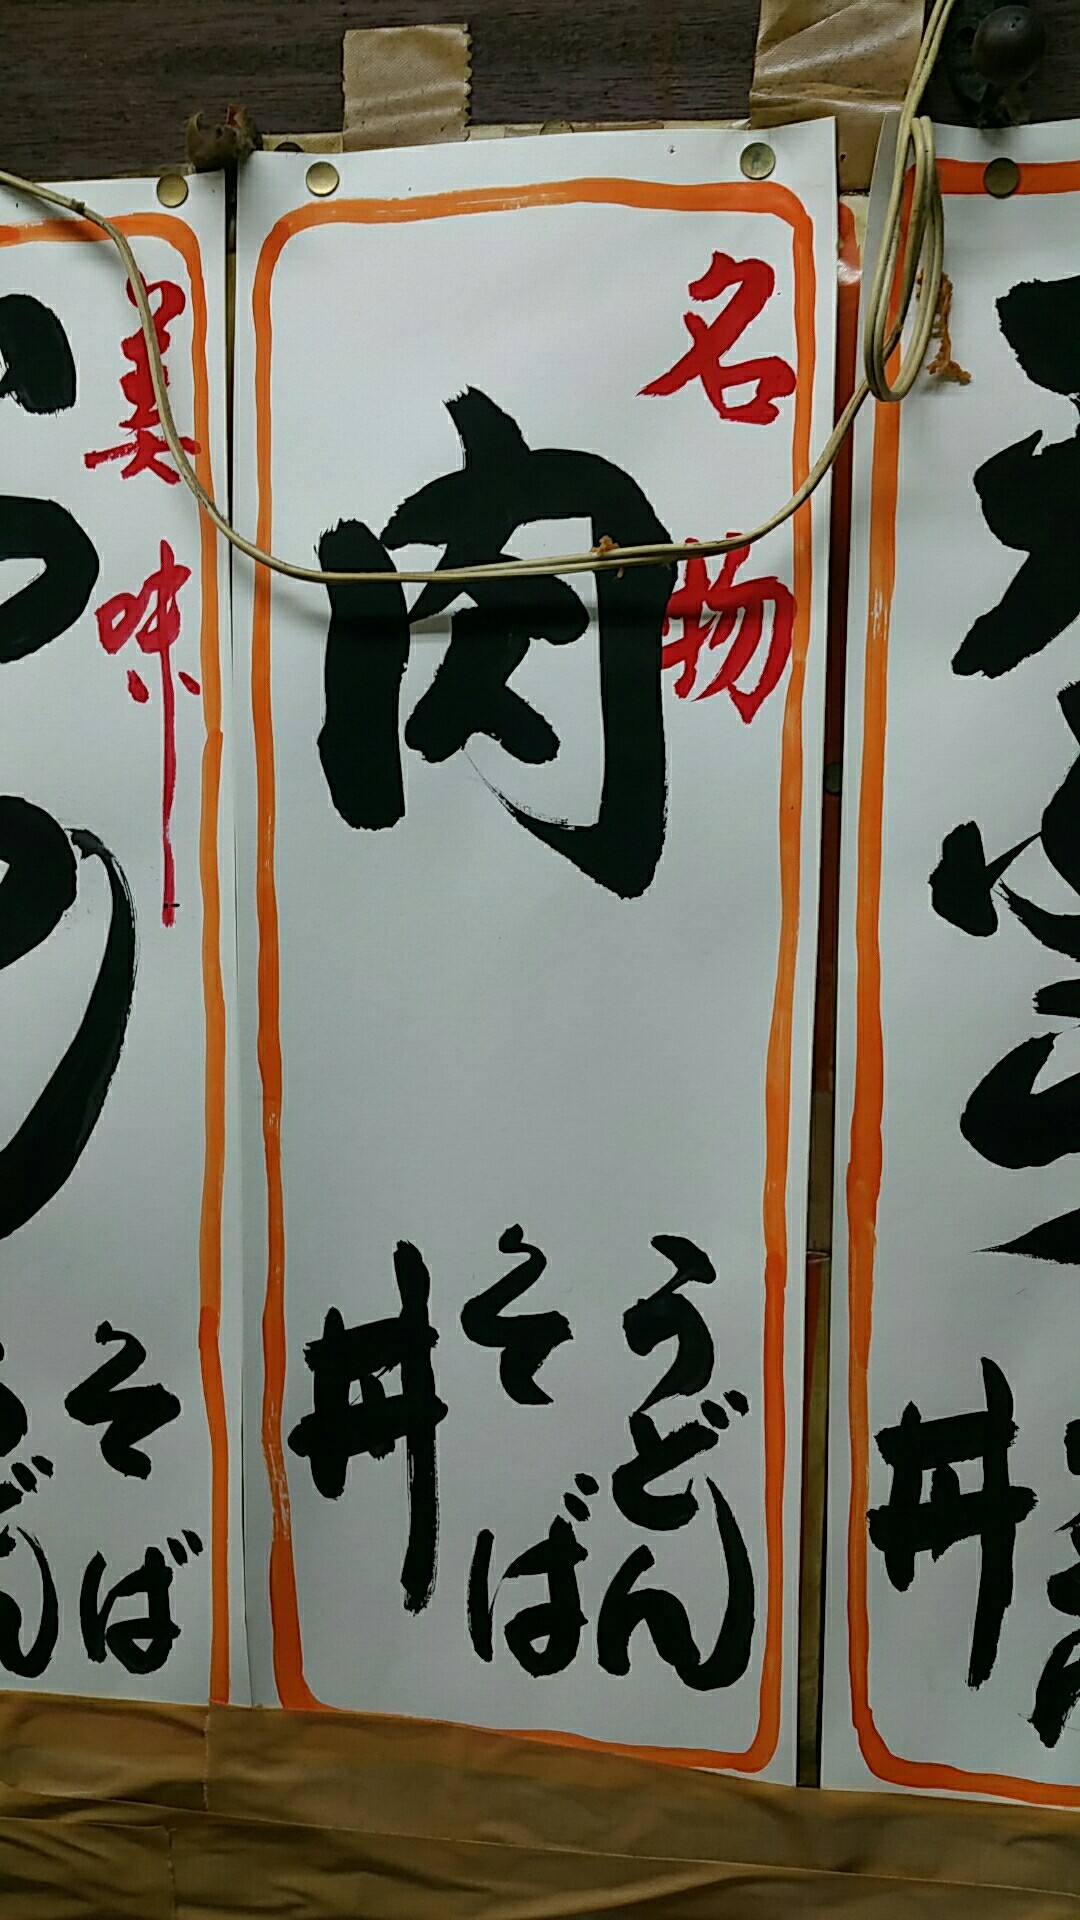 丼
名物
肉
うどん
そば
丼
美味
そば